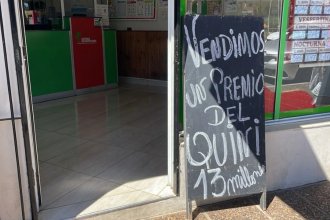 VENDIMOS
UN PREMIO
DEL
QUINI
13 millones
NOCTURNA